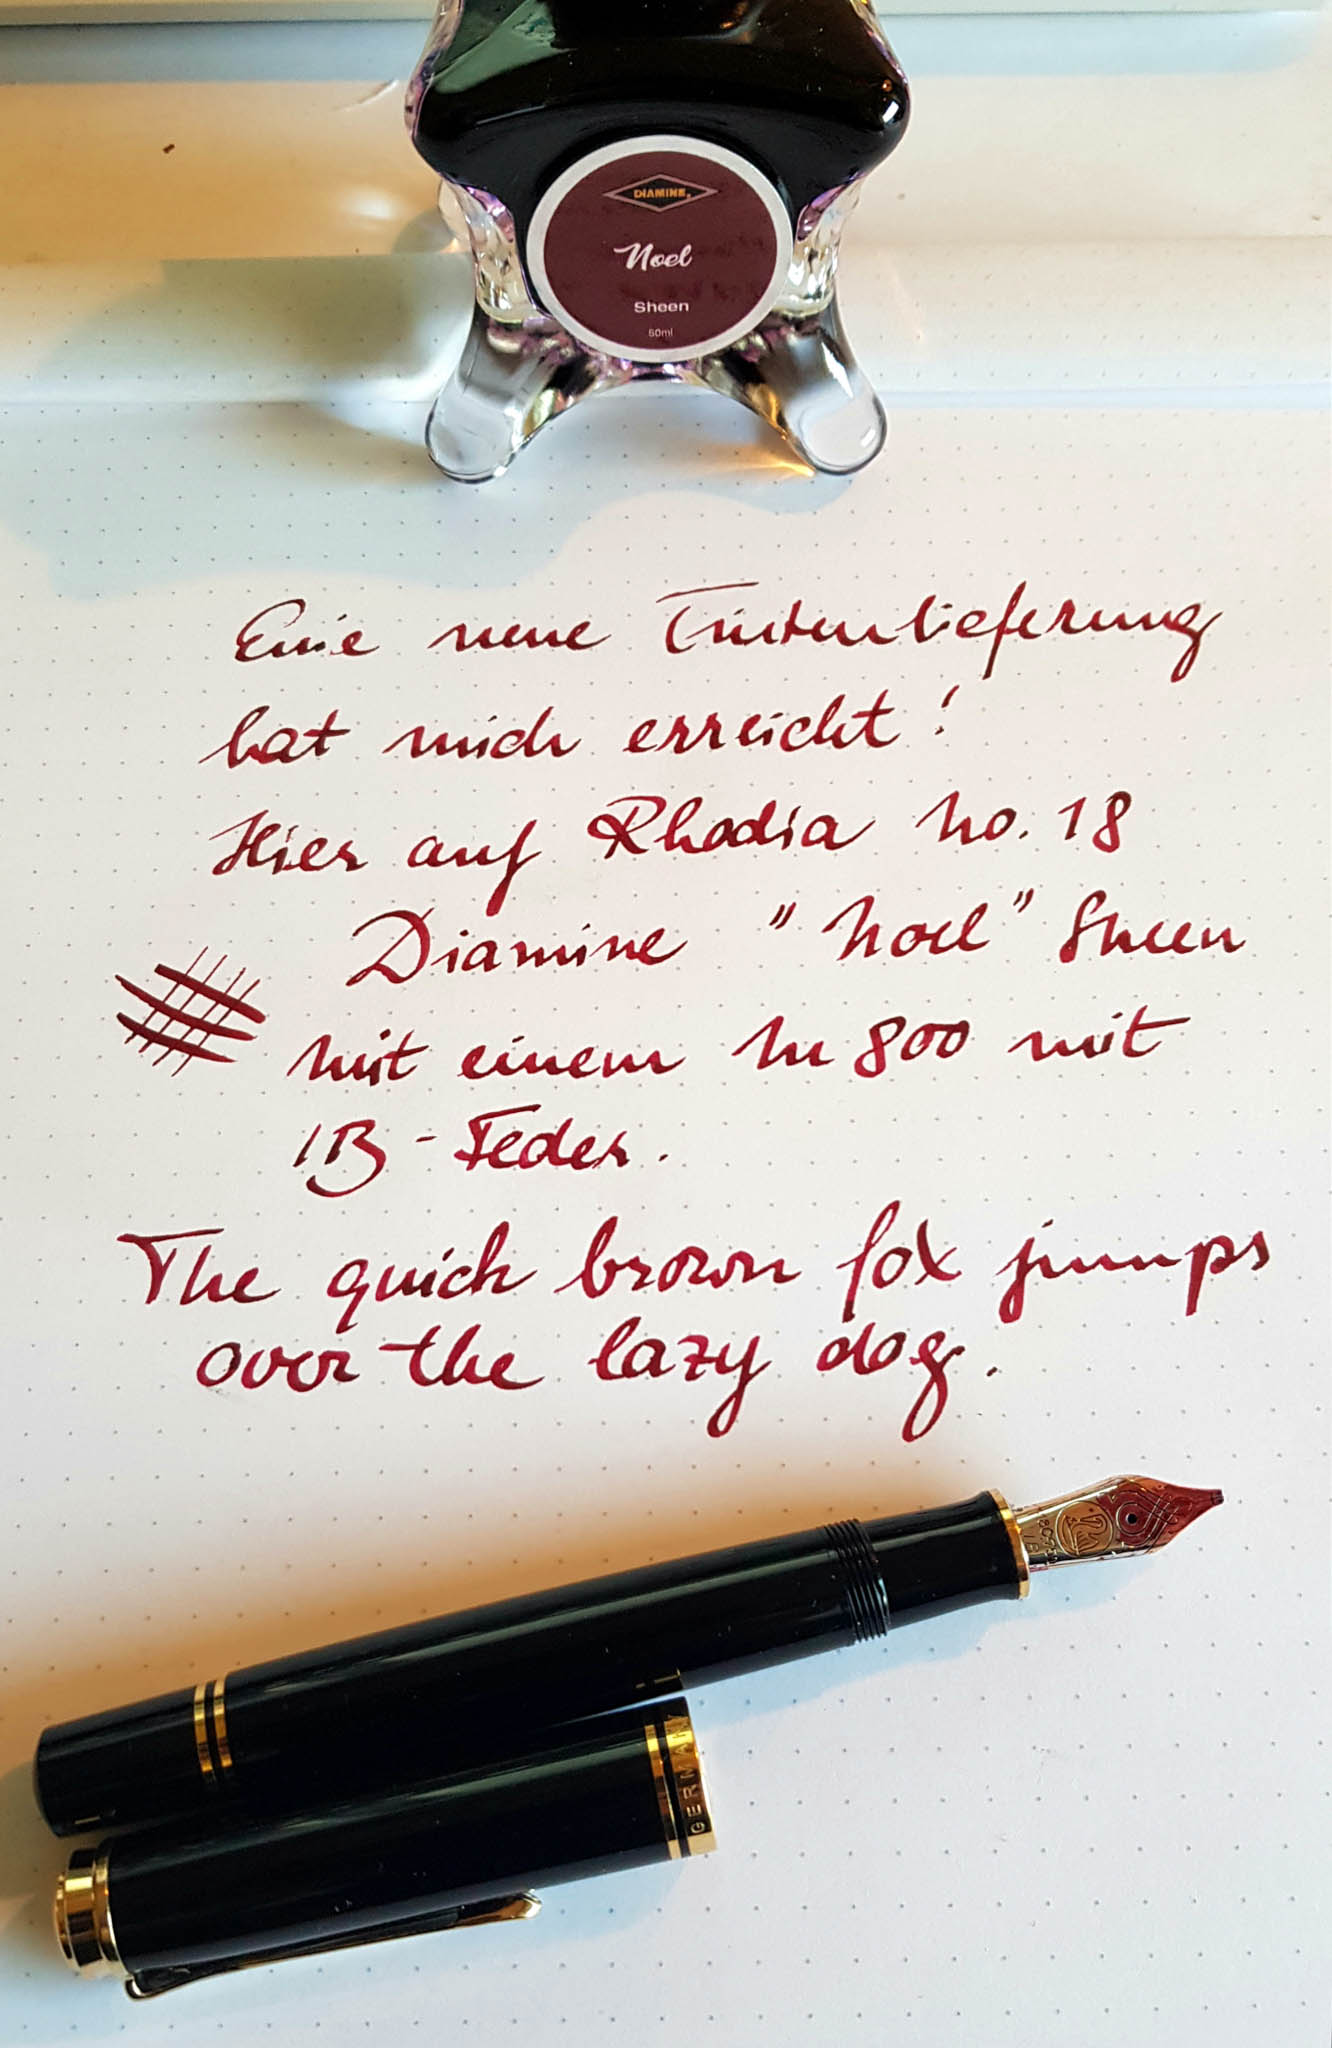 DIAMINE
Noel
Sheen
50ml
Eine neue Tintenlieferung
hat mich erreicht!
Hier auf Rhodia No. 18
Diamine "Noel" Sheen
mit einem M800 mit
IB-Feder.
The quick brown fox jumps
over the lazy dog.
GERMANY